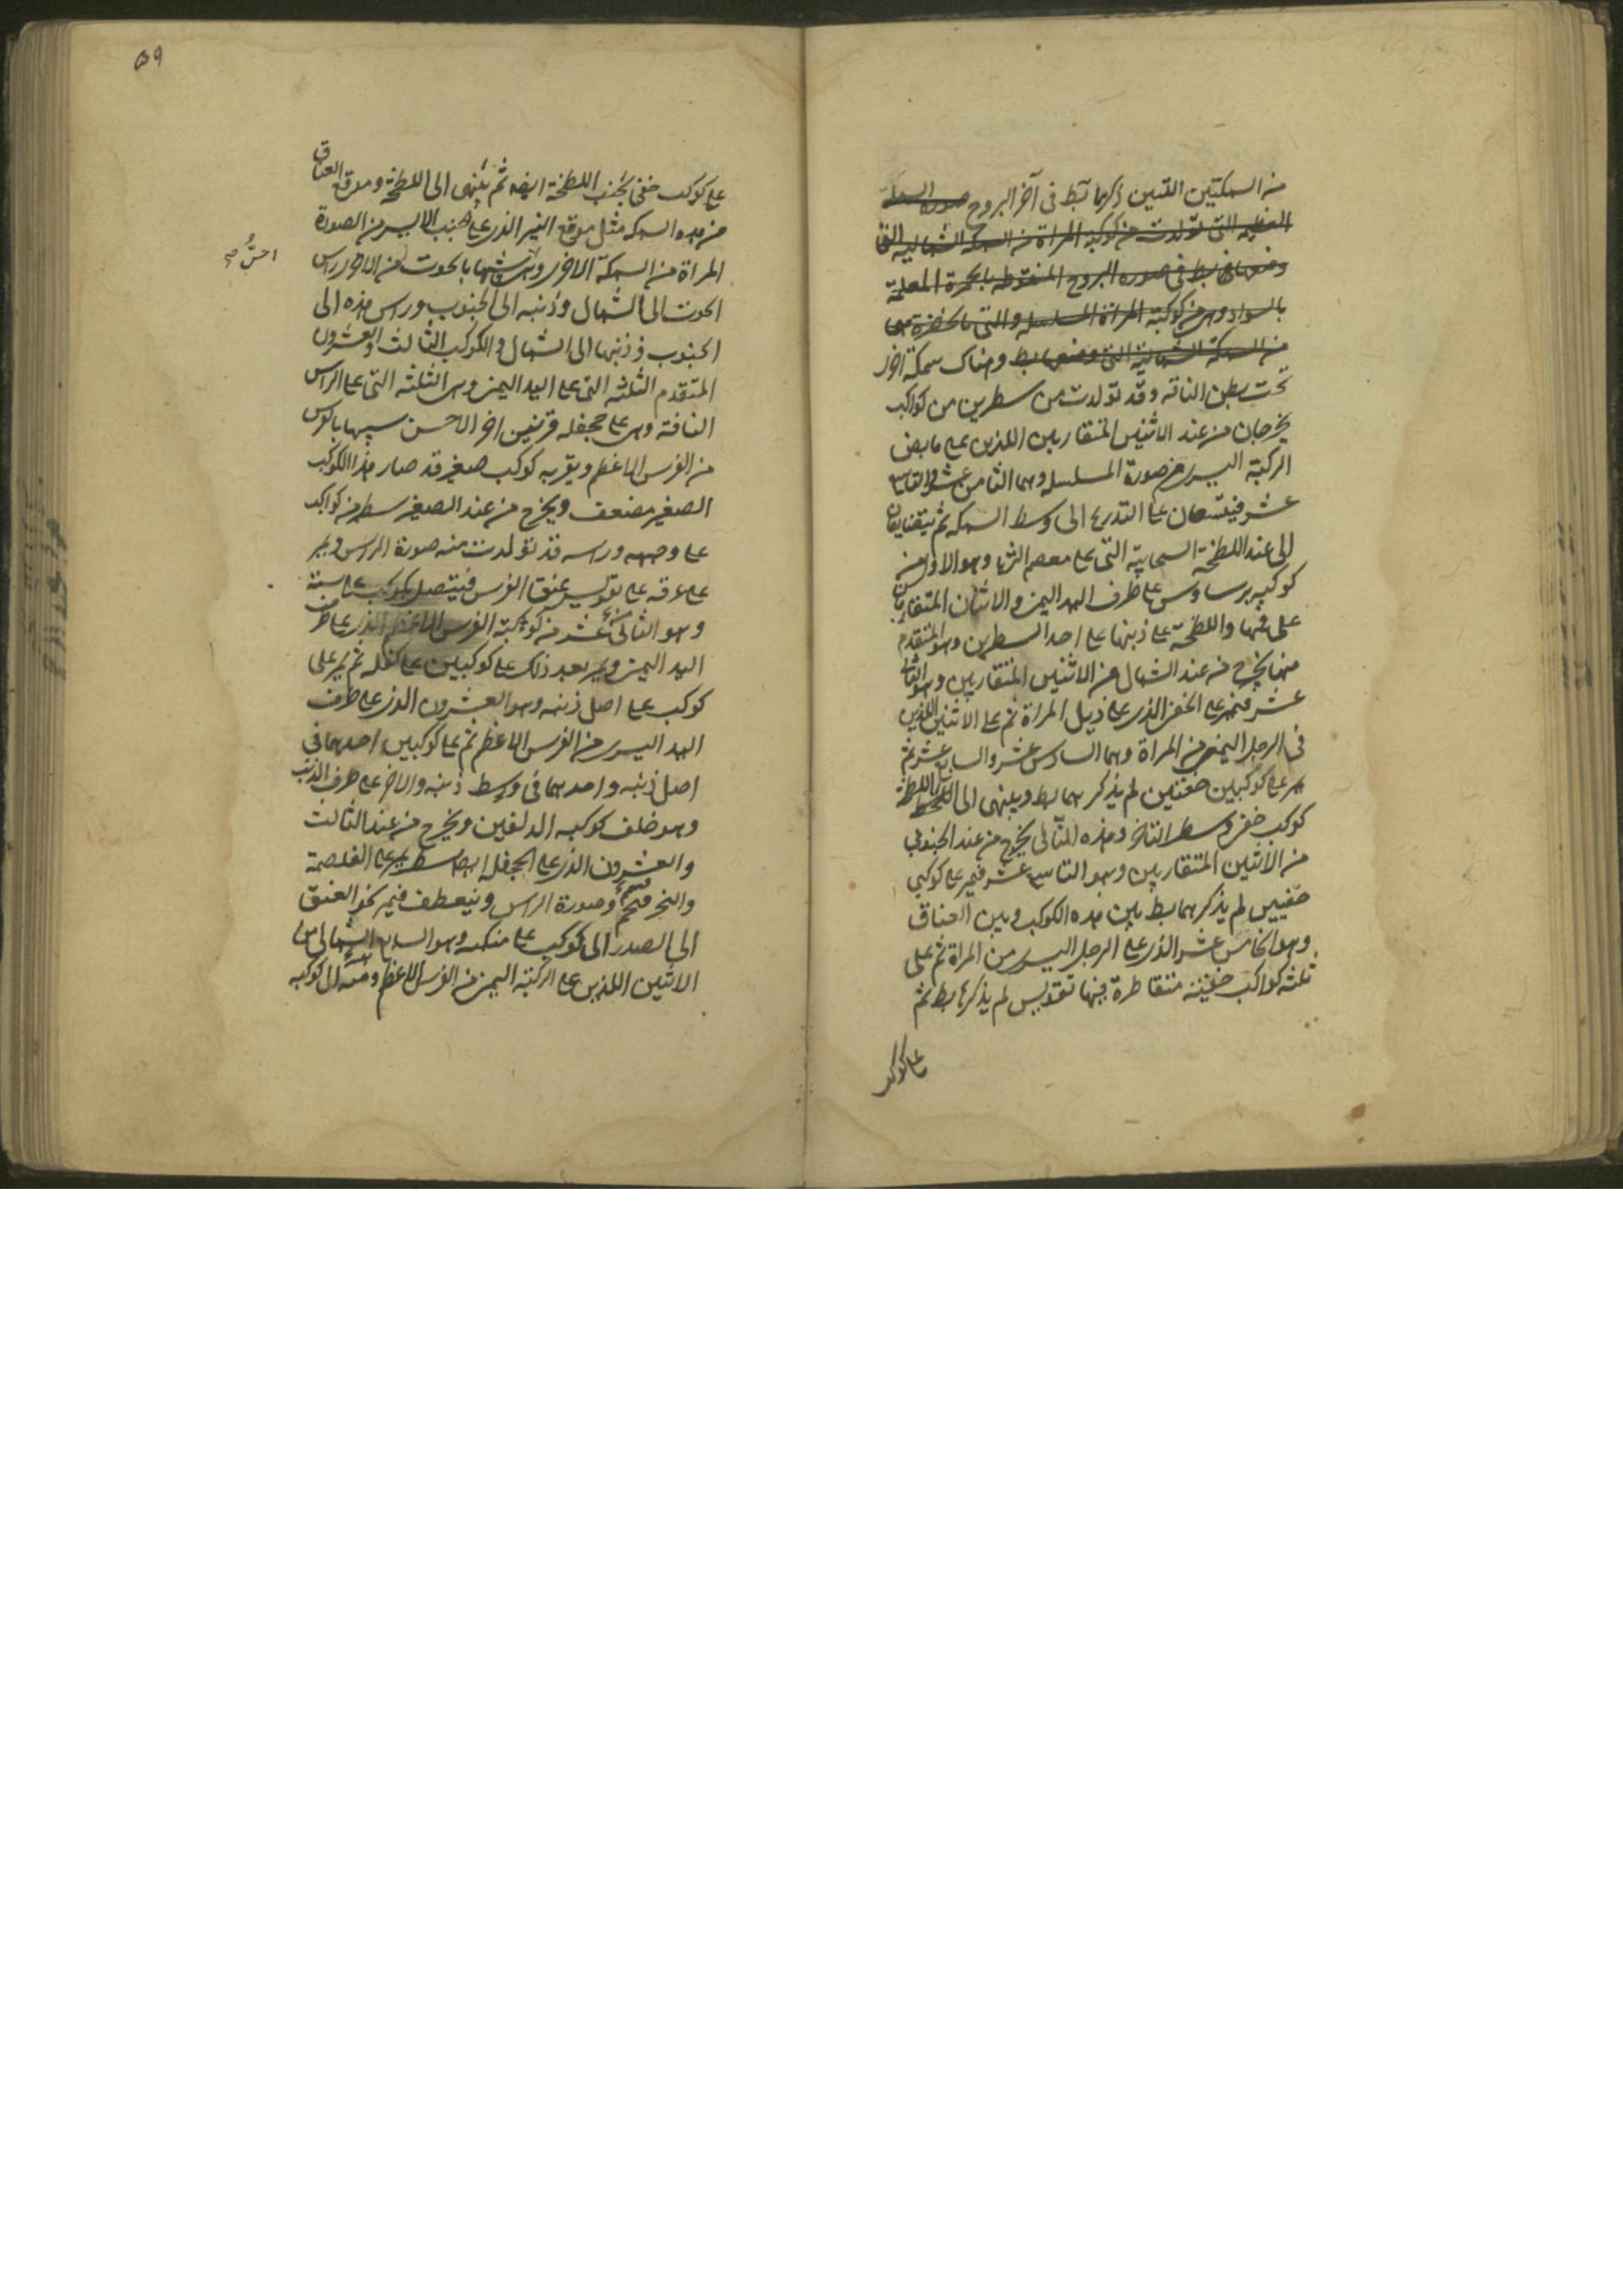 من السمكتين اللتين ذكرهما بط فى آخر البروج صورة السمكة
العظيمه التى تولدت من كوكبة المراة من السمكه الشماليه التى
وضعها بط فى صوره البروج المنقوطه بالحمرة المعلمة
بالسواد وهى من كوكبة المراة المسلسله والتى بالخضرة
من السمكة الشمالية التى وضعها بط وهناك سمكة اخرى
تحت بطن الناقه وقد تولدت من سطرين من كواكب
يخرجان من عند الاثنين المتقاربين اللذين على مابض
الركبة اليسرى من صورة المسلسله وهما الثامن عشر والتاسع
عشر فيتسعان على التدريج الى وسط السمكه ثم يتضايقان
الى عند اللطخة السحابية التى على معصم الثريا وهو الاول من
كوكبه برساوس على طرف اليد اليمنى والاثنان المتقاربان
على فمها واللطخة على ذنبها على احد السطرين وهو المتقدم
منها يخرج من عند الشمالى من الاثنين المتقاربين وهو الثامن
عشر فيمر على الخفى الذى على ذيل المراة ثم على الاثنين اللذين
فى الرجل اليمنى من المراة وهما السادس عشر والسابع عشر ثم
يمر على كوكبين خفيين لم يذكرهما بط وينتهى الى اللطخة
كوكب خفى وسطر التاخر وهذه التالى يخرج من عند الجنوبى
من الاثنين المتقاربين وهو التاسع عشر فيمر على كوكبى
خفيين لم يذكرهما بط بين هذه الكوكب وبين العناق
وهو الخامس عشر الذى على الرجل اليسرى من المراة ثم على
ثلثه كواكب خفيه متقاطرة فيها تقويس لم يذكرها بط ثم
على كوكب
٥٩
على كوكب خفى بجنب اللطخة ايضه ثم ينتهى الى اللطخة وموقع العناق
من هذه السمكه مثل موقع النير الذى على جنب الايسر من الصورة
المراة من السمكة الاخرى وهى اشبهها بالحوت من الاخرى راس
احسن صح
الحوت الى الشمال وذنبه الى الجنوب وراس هذه الى
الجنوب وذنبها الى الشمال والكوكب الثالث والعشرون
المتقدم الثلثه التى على اليد اليمنى وهى الثلثه التى على الراس
الناقة وهى على جحفله فرسين اخر الاحسن سبيها بالفرس
من الفرس الاعظم وبقربه كوكب صغير قد صار هذا الكوكب
الصغير مضعف ويخرج من عند الصغير سطر من كواكب
على وجهه وراسه قد تولدت منه صورة الراس ويمر
على عرفه على تقويس عنق الفرس فيتصل بكوكب على متنه
وهو الثانى عشر من كوكبة الفرس الاعظم الذى على طرف
اليد اليمنى ويمر بعد ذلك على كوكبين على كفله ثم يمر على
كوكب على اصل ذنبه وهو العشرون الذى على طرف
اليد اليسرى من الفرس الاعظم ثم على كوكبين احدهما فى
اصل ذنبه واحدهما فى وسط ذنبه والاخر على طرف الذنب
وهو خلف كوكبه الدلفين ويخرج من عند الثالث
والعشرون الذى على الجحفله ايضا سطر يمر على الغلصمة
والنحر فتتم وصورة الراس وينعطف فيمر نحو العنق
الى الصدر الى كوكب على منكبه وهو السابع الشمالى من
الاثنين اللذين على الركبة اليمنى من الفرس الاعظم ومنه الى كوكبه